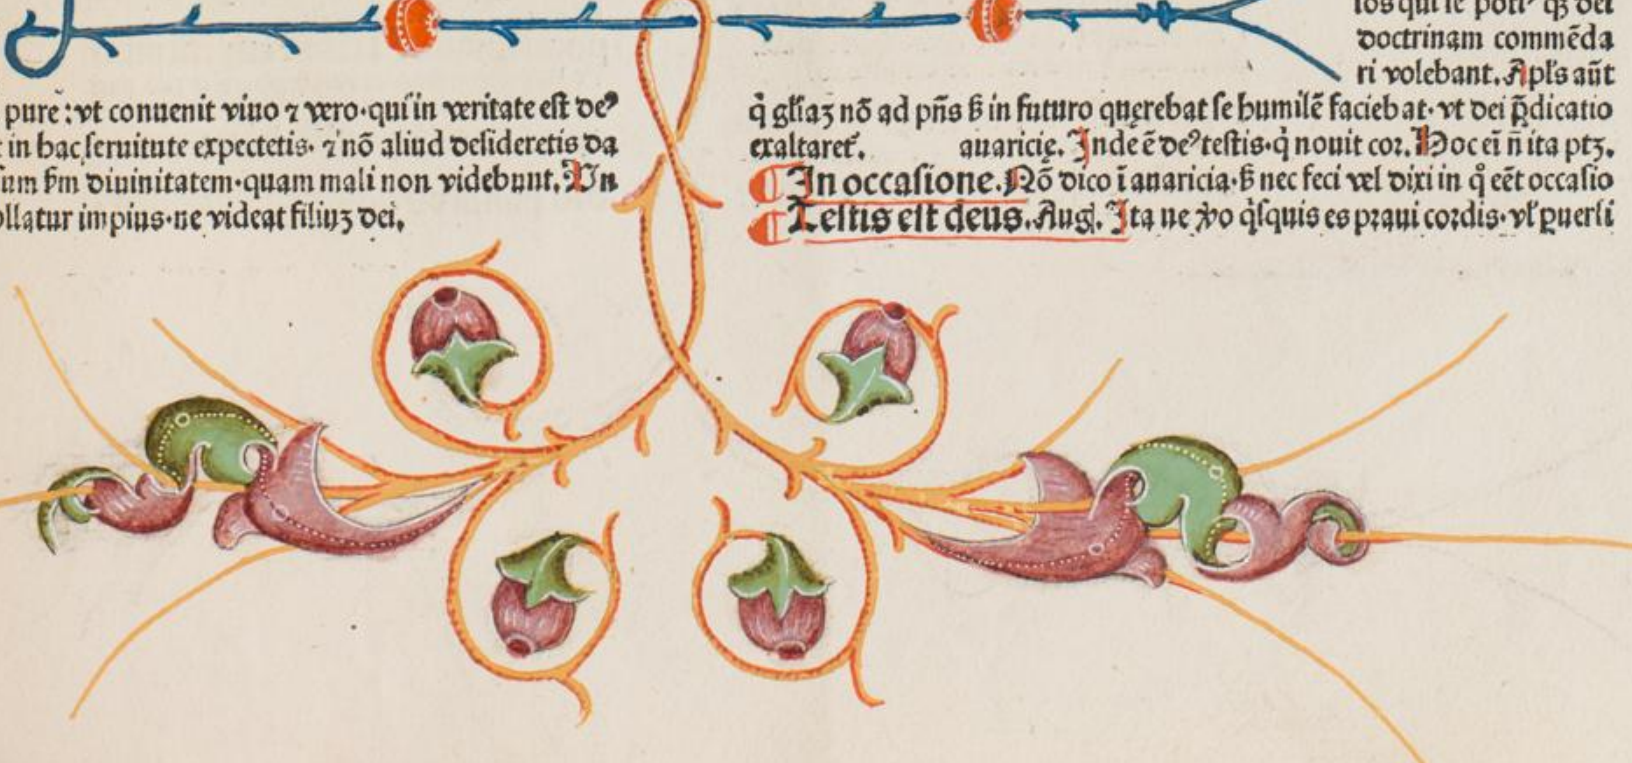 pure: vt conuenit viuo ⁊ vero· qui in veritate est deꝰ
in hac seruitute expectetis· ⁊ nō aliud desideretis da
ſm diuinitatem· quam mali non videbunt. Un
impius· ne videat filiuꝫ dei.
los qui se
doctrinam commēda
ri volebant. Apl's aūt
nō ad pn̄s in futuro querebat se humilē faciebat· vt dei p̄dicatio
exaltaret'. auaricię. Inde ē deꝰ testis· q̇ nouit cor. Hoc ei n̄ ita ptꝫ.
In occasione. Nō dico ī auaricia· nec feci vel dixi in eēt occasio
Testis est deus. Aug. Ita ne q̇squis es praui cordis· vl' pueri